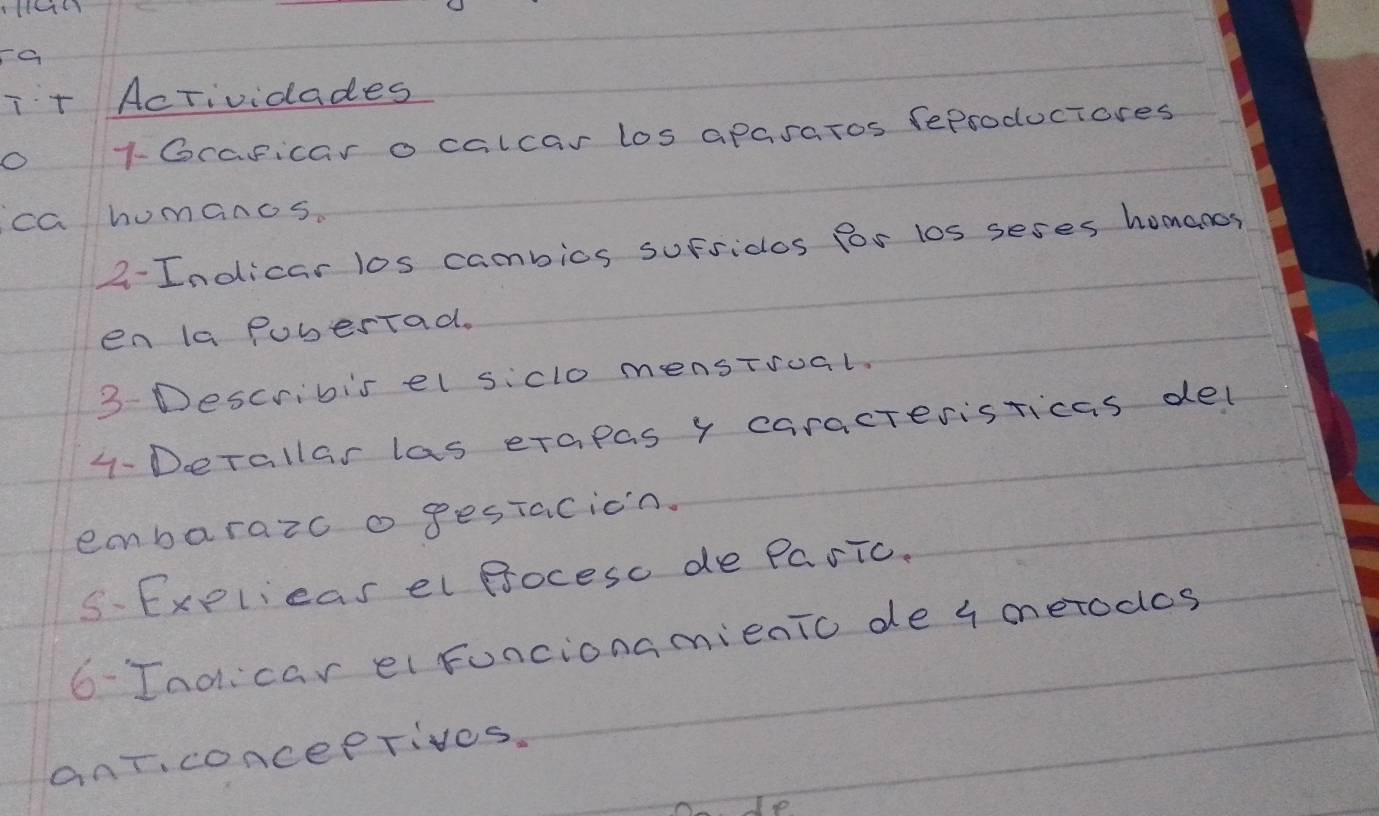 Actividades
1- Graficar o calcar los aparatos reproductores
humanos.
2- Indicar los cambios sufridos Por los seres humanos
en la Pubertad.
3- Describir el siclo menstrual.
4- Detallar las etapas y caracteristicas del
embarazo o gestación.
5- Explicar el Proceso de Parto.
6- Indicar el Funcionamiento de 4 metodos
anticonceptivos.